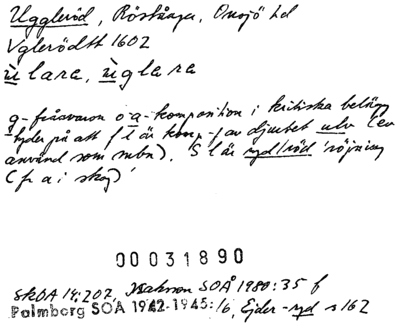 Uggleröd, Röstånga, Onsjö hd
Vglerödtt 1602
ùlara, ùglara
g-frånvaron o a-komposition i kritiska belägg
tyder på att f l är komp-f av djurbet ulv (ev
använd som mbn). S l är ryd/röd 'röjning
(fr a i skog)'
00031890
SkOA 14:207, Isakson SOÅ 1980:35 f
Palmborg SOÅ 1942-1945:16, Ejder -ryd s 162